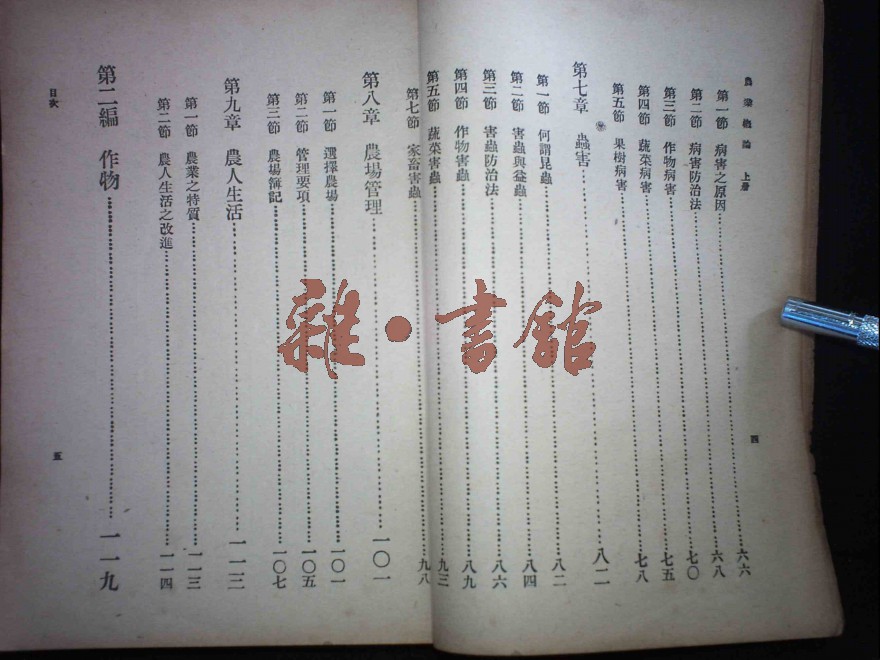 農業概論 上冊
第一節 病害之原因……六六
第二節 病害防治法……六八
第三節 作物病害……七〇
第四節 蔬菜病害……七五
第五節 果樹病害……七八
第七章 蟲害……八二
第一節 何謂昆蟲……八二
第二節 害蟲與益蟲……八四
第三節 害蟲防治法……八六
第四節 作物害蟲……八九
第五節 蔬菜害蟲……九三
第七節 家畜害蟲……九八
四
第八章 農場管理……一〇一
第一節 選擇農場……一〇一
第二節 管理要項……一〇五
第三節 農場簿記……一〇七
第九章 農人生活……一一三
第一節 農業之特質……一一三
第二節 農人生活之改進……一一四
第二編 作物……一一九
目次
五
雜·書舘